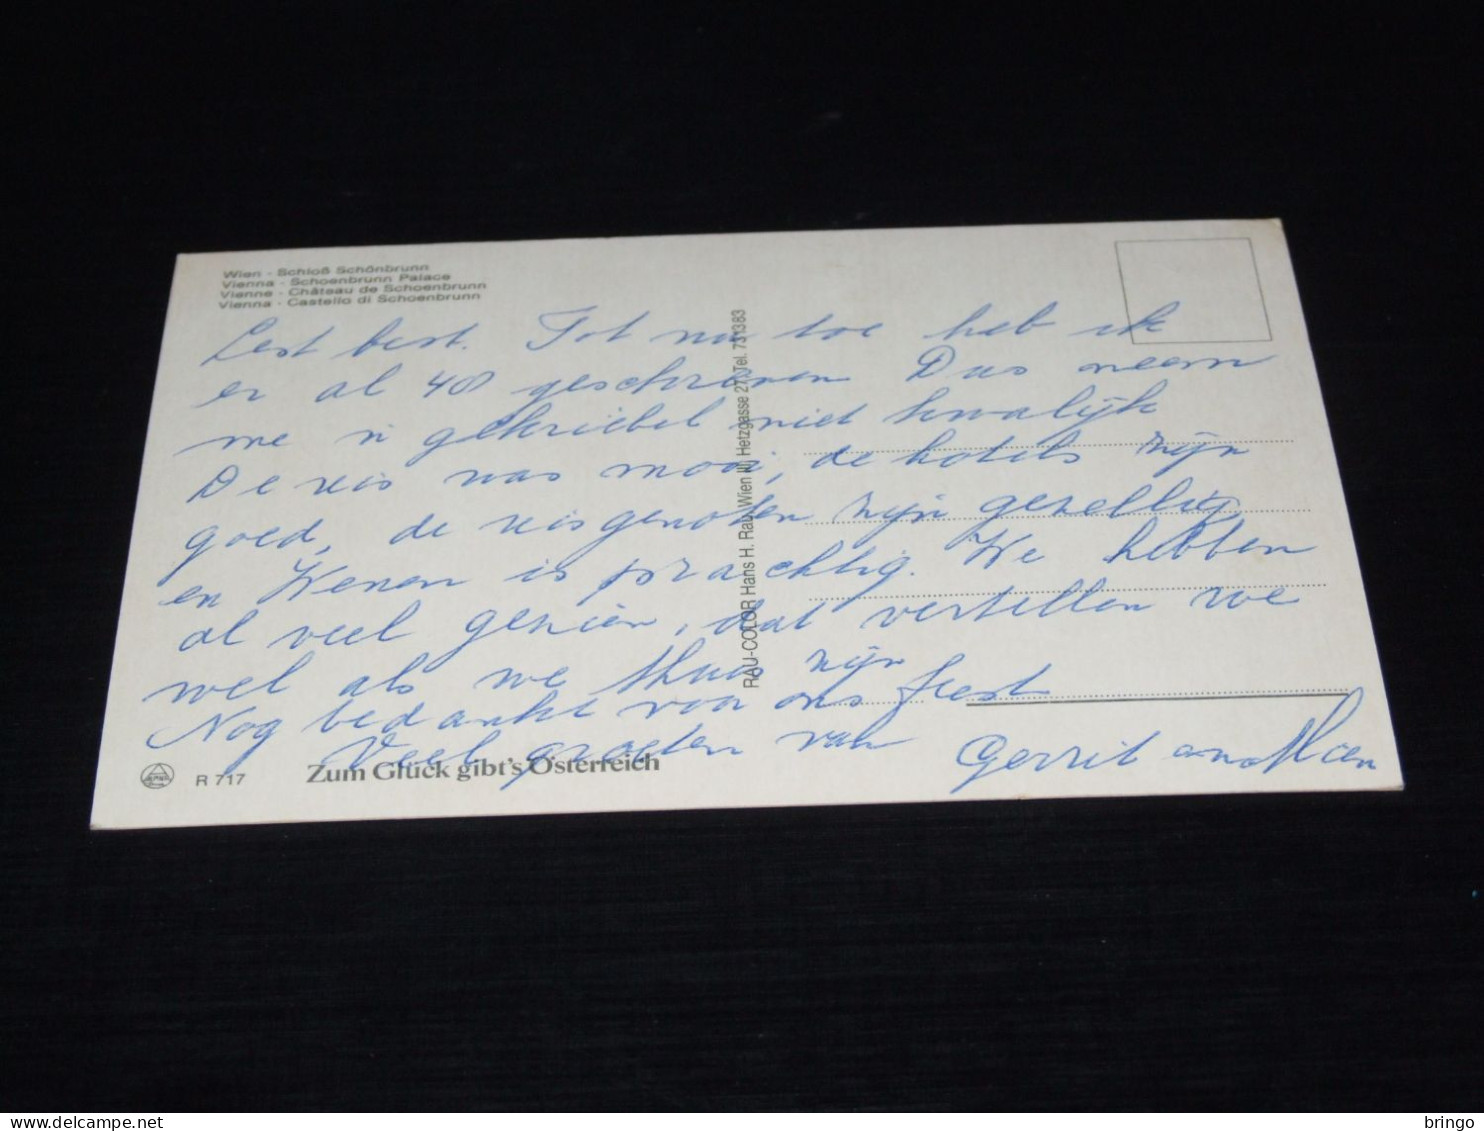 Wien - Schloß Schönbrunn
Vienna - Schoenbrunn Palace
Vienne - Château de Schoenbrunn
Vienna - Castello di Schoenbrunn
Lest best. Tot nu toe heb ik
er al 40 geschreven Dus neem
me 'n gekriebel niet kwalijk
De reis was mooi, de hotels zijn
goed, de reisgenoten zijn gezellig
en Wenen is prachtig. We hebben
al veel gezien, dat vertellen we
wel als we thuis zijn
Nog bedankt voor ons feest
Veel groeten van Gerrit en
RAU-COLOR Hans H. Rau, Wien III, Hetzgasse 27, Tel. 731383
R 717
Zum Glück gibt's Österreich
delcampe.net
bringo